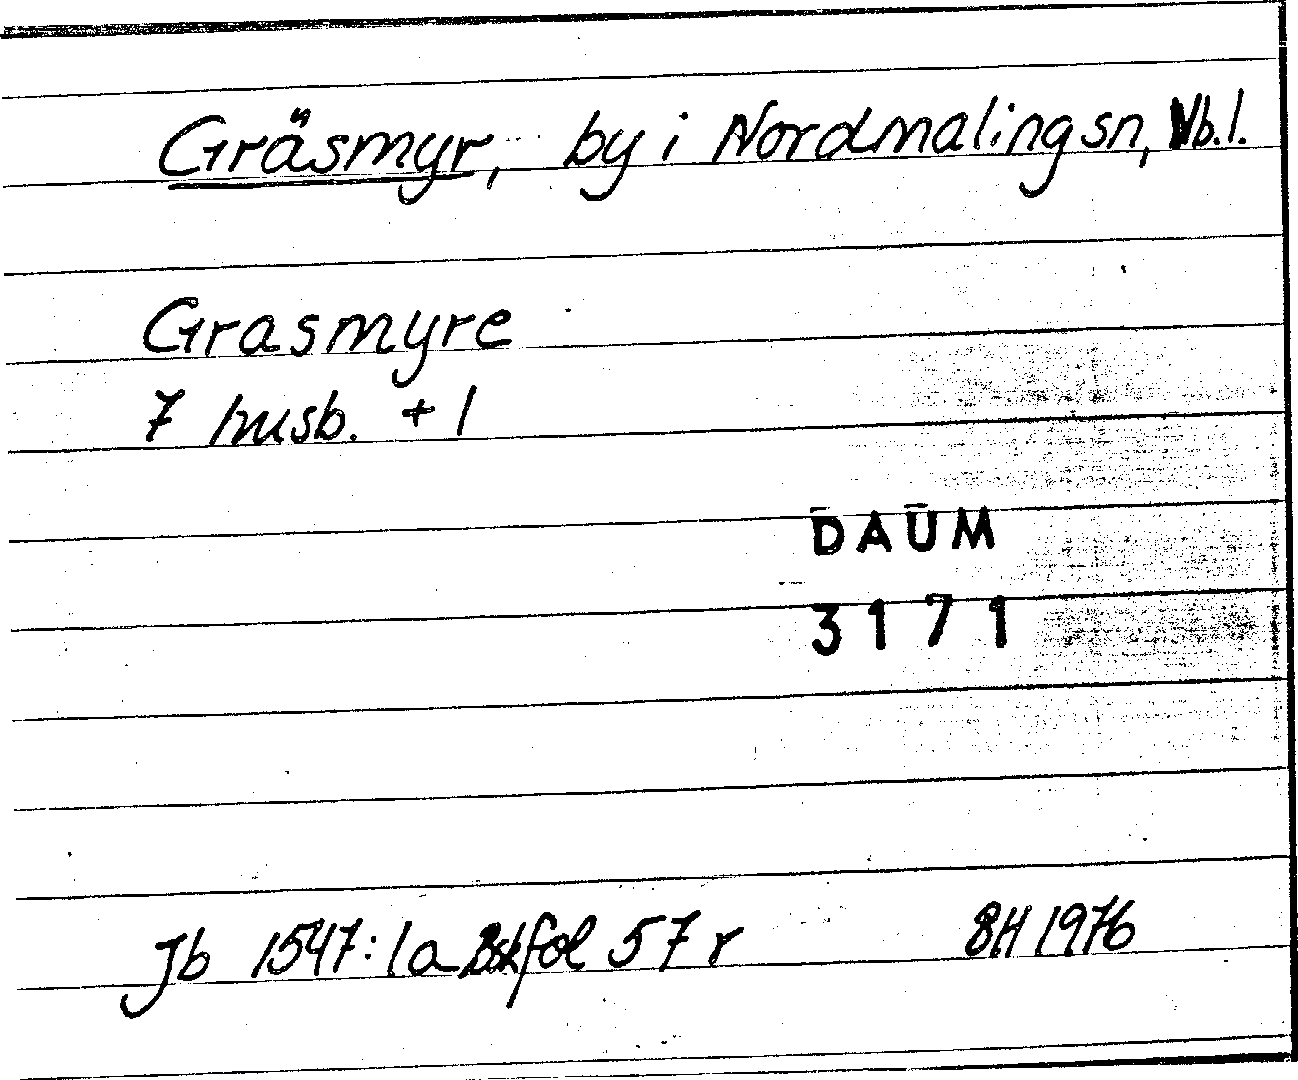 Gräsmyr, by i Nordmalingsn, Vb.l.
Grasmyre
7 husb. + 1
DAUM
3171
Jb 1547:1a fol 57 r BH 1976